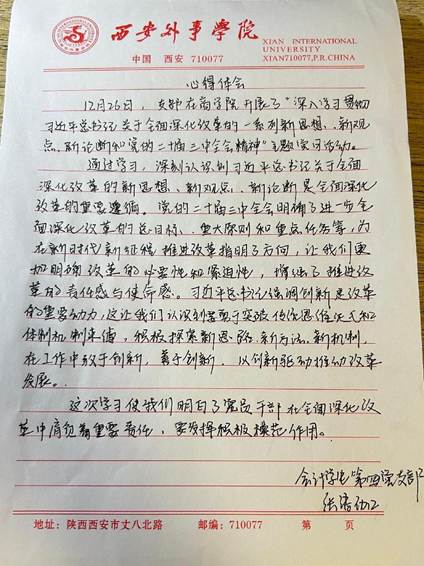 西安外事学院
XIAN INTERNATIONAL
UNIVERSITY
中国 西安 710077
XIAN710077,P.R.CHINA
心得体会
12月26日，支部在商学院开展了“深入学习贯彻
习近平总书记关于全面深化改革的一系列新思想、新观
点、新论断和党的二十届三中全会精神”主题实习活动。
通过学习，深刻认识到习近平总书记关于全面
深化改革的新思想、新观点、新论断是全面深化
改革的重要遵循。党的二十届三中全会明确了进一步全
面深化改革的总目标、重大原则和重点任务等，为
在新时代新征程推进改革指明了方向，让我们更
加明确改革的必要性和紧迫性，增强了推进改
革的责任感与使命感。习近平总书记强调创新是改革
的重要动力，这让我们认识到要勇于突破传统思维定式和
体制机制束缚，积极探索新思路、新方法、新机制，
在工作中敢于创新、善于创新，以创新驱动推动改革
发展。
这次学习使我们明白了党员干部在全面深化改
革中肩负着重要责任，要发挥积极模范作用。
会计学生第四党支部
张
地址：陕西西安市丈八北路 邮编：710077 第 页